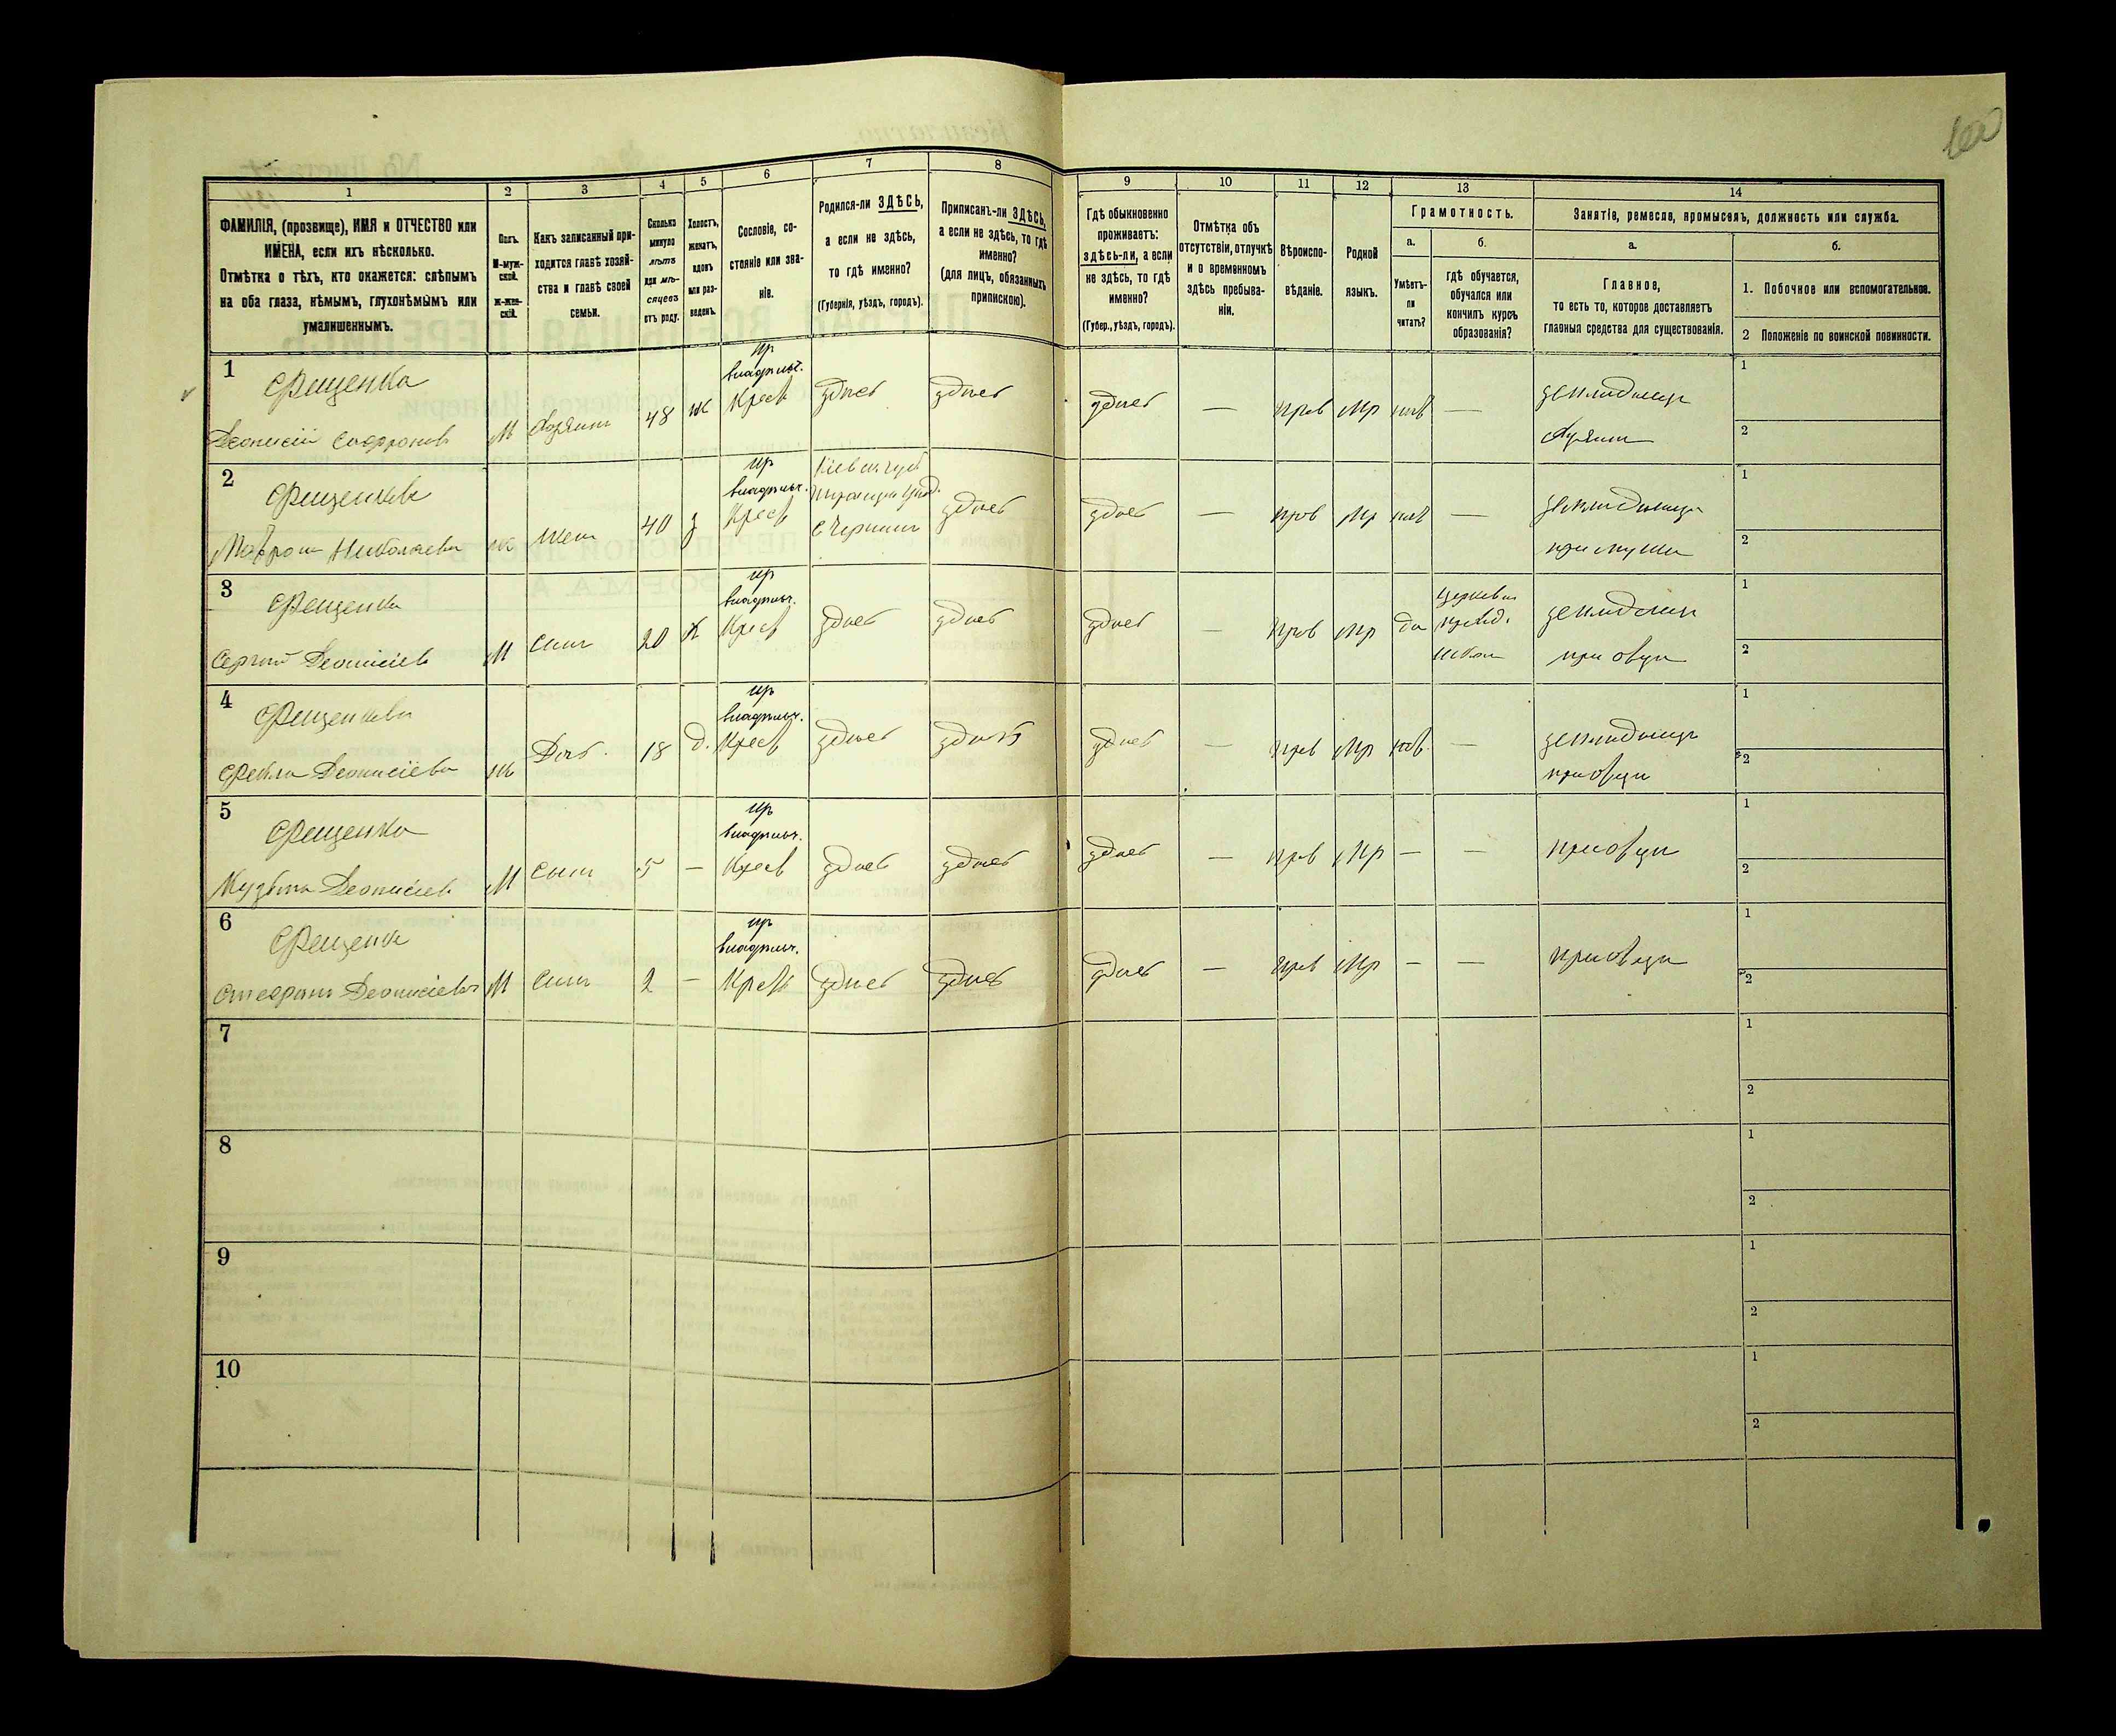 1
2
3
4
5
6
7
8
9
10
11
12
13
14
ФАМИЛІЯ, (прозвище), ИМЯ и ОТЧЕСТВО или
ИМЕНА, если ихъ нѣсколько.
Отмѣтка о тѣхъ, кто окажется: слѣпымъ
на оба глаза, нѣмымъ, глухонѣмымъ или
умалишеннымъ.
Полъ.
М-муж-
ской.
ж-жен-
скій.
Какъ записанный при-
ходится главѣ хозяй-
ства и главѣ своей
семьи.
Сколько
минуло
лѣтъ
или мѣ-
сяцевъ
отъ роду.
Холостъ,
женатъ,
вдовъ
или раз-
веденъ.
Сословіе, со-
стояніе или зва-
ніе.
Родился-ли ЗДѢСЬ,
а если не здѣсь,
то гдѣ именно?
(Губернія, уѣздъ, городъ).
Приписанъ-ли ЗДѢСЬ,
а если не здѣсь, то гдѣ
именно?
(для лицъ, обязанныхъ
припискою).
Гдѣ обыкновенно
проживаетъ:
здѣсь-ли, а если
не здѣсь, то гдѣ
именно?
(Губер., уѣздъ, городъ).
Отмѣтка объ
отсутствіи, отлучкѣ
и о временномъ
здѣсь пребыва-
ніи.
Вѣроиспо-
вѣданіе.
Родной
языкъ.
Грамотность.
а.
Умѣетъ-
ли
читать?
б.
гдѣ обучается,
обучался или
кончилъ курсъ
образованія?
Занятіе, ремесло, промыселъ, должность или служба.
а.
Главное,
то есть то, которое доставляетъ
главныя средства для существованія.
б.
1. Побочное или вспомогательное.
2 Положеніе по воинской повинности.
1
Фещенко
Деонисій Софроновъ
М
Хозяинъ
48
ж
Крест
здѣсь
здѣсь
здѣсь
—
прав
мр
нѣт
—
земледѣлецъ
хозяинъ
1
2
2
Фещенкова
Николаева
ж
жена
40
з
Крест
Кіевск губ
здѣсь
здѣсь
—
прав
мр
нѣт
—
земледѣлецъ
при мужѣ
1
2
3
Фещенко
Сергій Деонисіевъ
М
сынъ
20
х
Крест
здѣсь
здѣсь
здѣсь
—
прав
мр
да
церковно
приход.
школа
земледѣлецъ
при отцѣ
1
2
4
Фещенкова
Фекла Деонисіева
ж
Дочь
18
д.
Крест
здѣсь
здѣсь
здѣсь
—
прав
мр
нѣт
—
земледѣлецъ
при отцѣ
1
2
5
Фещенко
Кузьма Деонисіевъ
М
сынъ
5
—
Крест
здѣсь
здѣсь
здѣсь
—
прав
мр
—
—
при отцѣ
1
2
6
Фещенко
Стефанъ Деонисіевъ
М
сынъ
2
—
Крест
здѣсь
здѣсь
здѣсь
—
прав
мр
—
—
при отцѣ
1
2
7
1
2
8
1
2
9
1
2
10
1
2